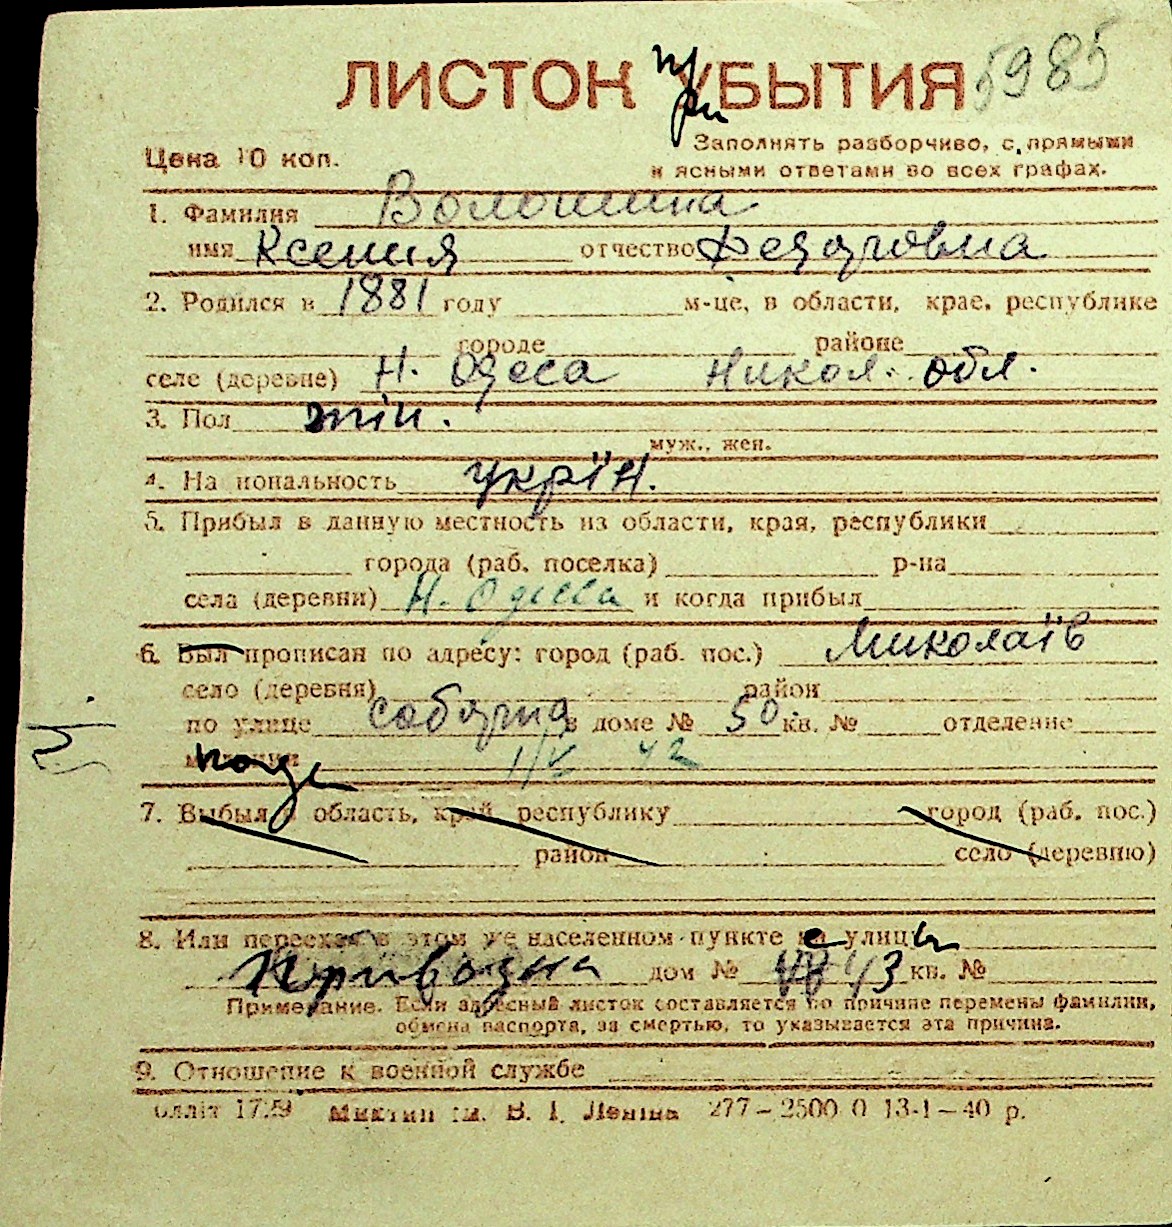 ЛИСТОК УБЫТИЯ 5985
при
Цена 10 коп.
Заполнять разборчиво, с прямыми
и ясными ответами во всех графах.
1. Фамилия Волошина
имя Ксения отчество Федоровна
2. Родился в 1881 году м-це, в области, крае, республике
городе районе
селе (деревне) Н. Одеса Никол. обл.
3. Пол жін.
муж., жен.
4. Национальность україн.
5. Прибыл в данную местность из области, края, республики
города (раб. поселка) р-на
села (деревни) Н. Одесса и когда прибыл
6. Был прописан по адресу: город (раб. пос.) Миколаїв
село (деревня) район
по улице Соборна в доме № 50 кв. № отделение
милиции 42
7. Выбыл в область, край, республику город (раб. пос.)
район село (деревню)
8. Или переехал в этом же населенном пункте с улицы
Привозна дом № 43 кв. №
Примечание. Если адресный листок составляется по причине перемены фамилии,
обмена паспорта, за смертью, то указывается эта причина.
9. Отношение к военной службе
Облліт 1729 Миктип ім. В. І. Леніна 277–2500 0 13-1–40 р.